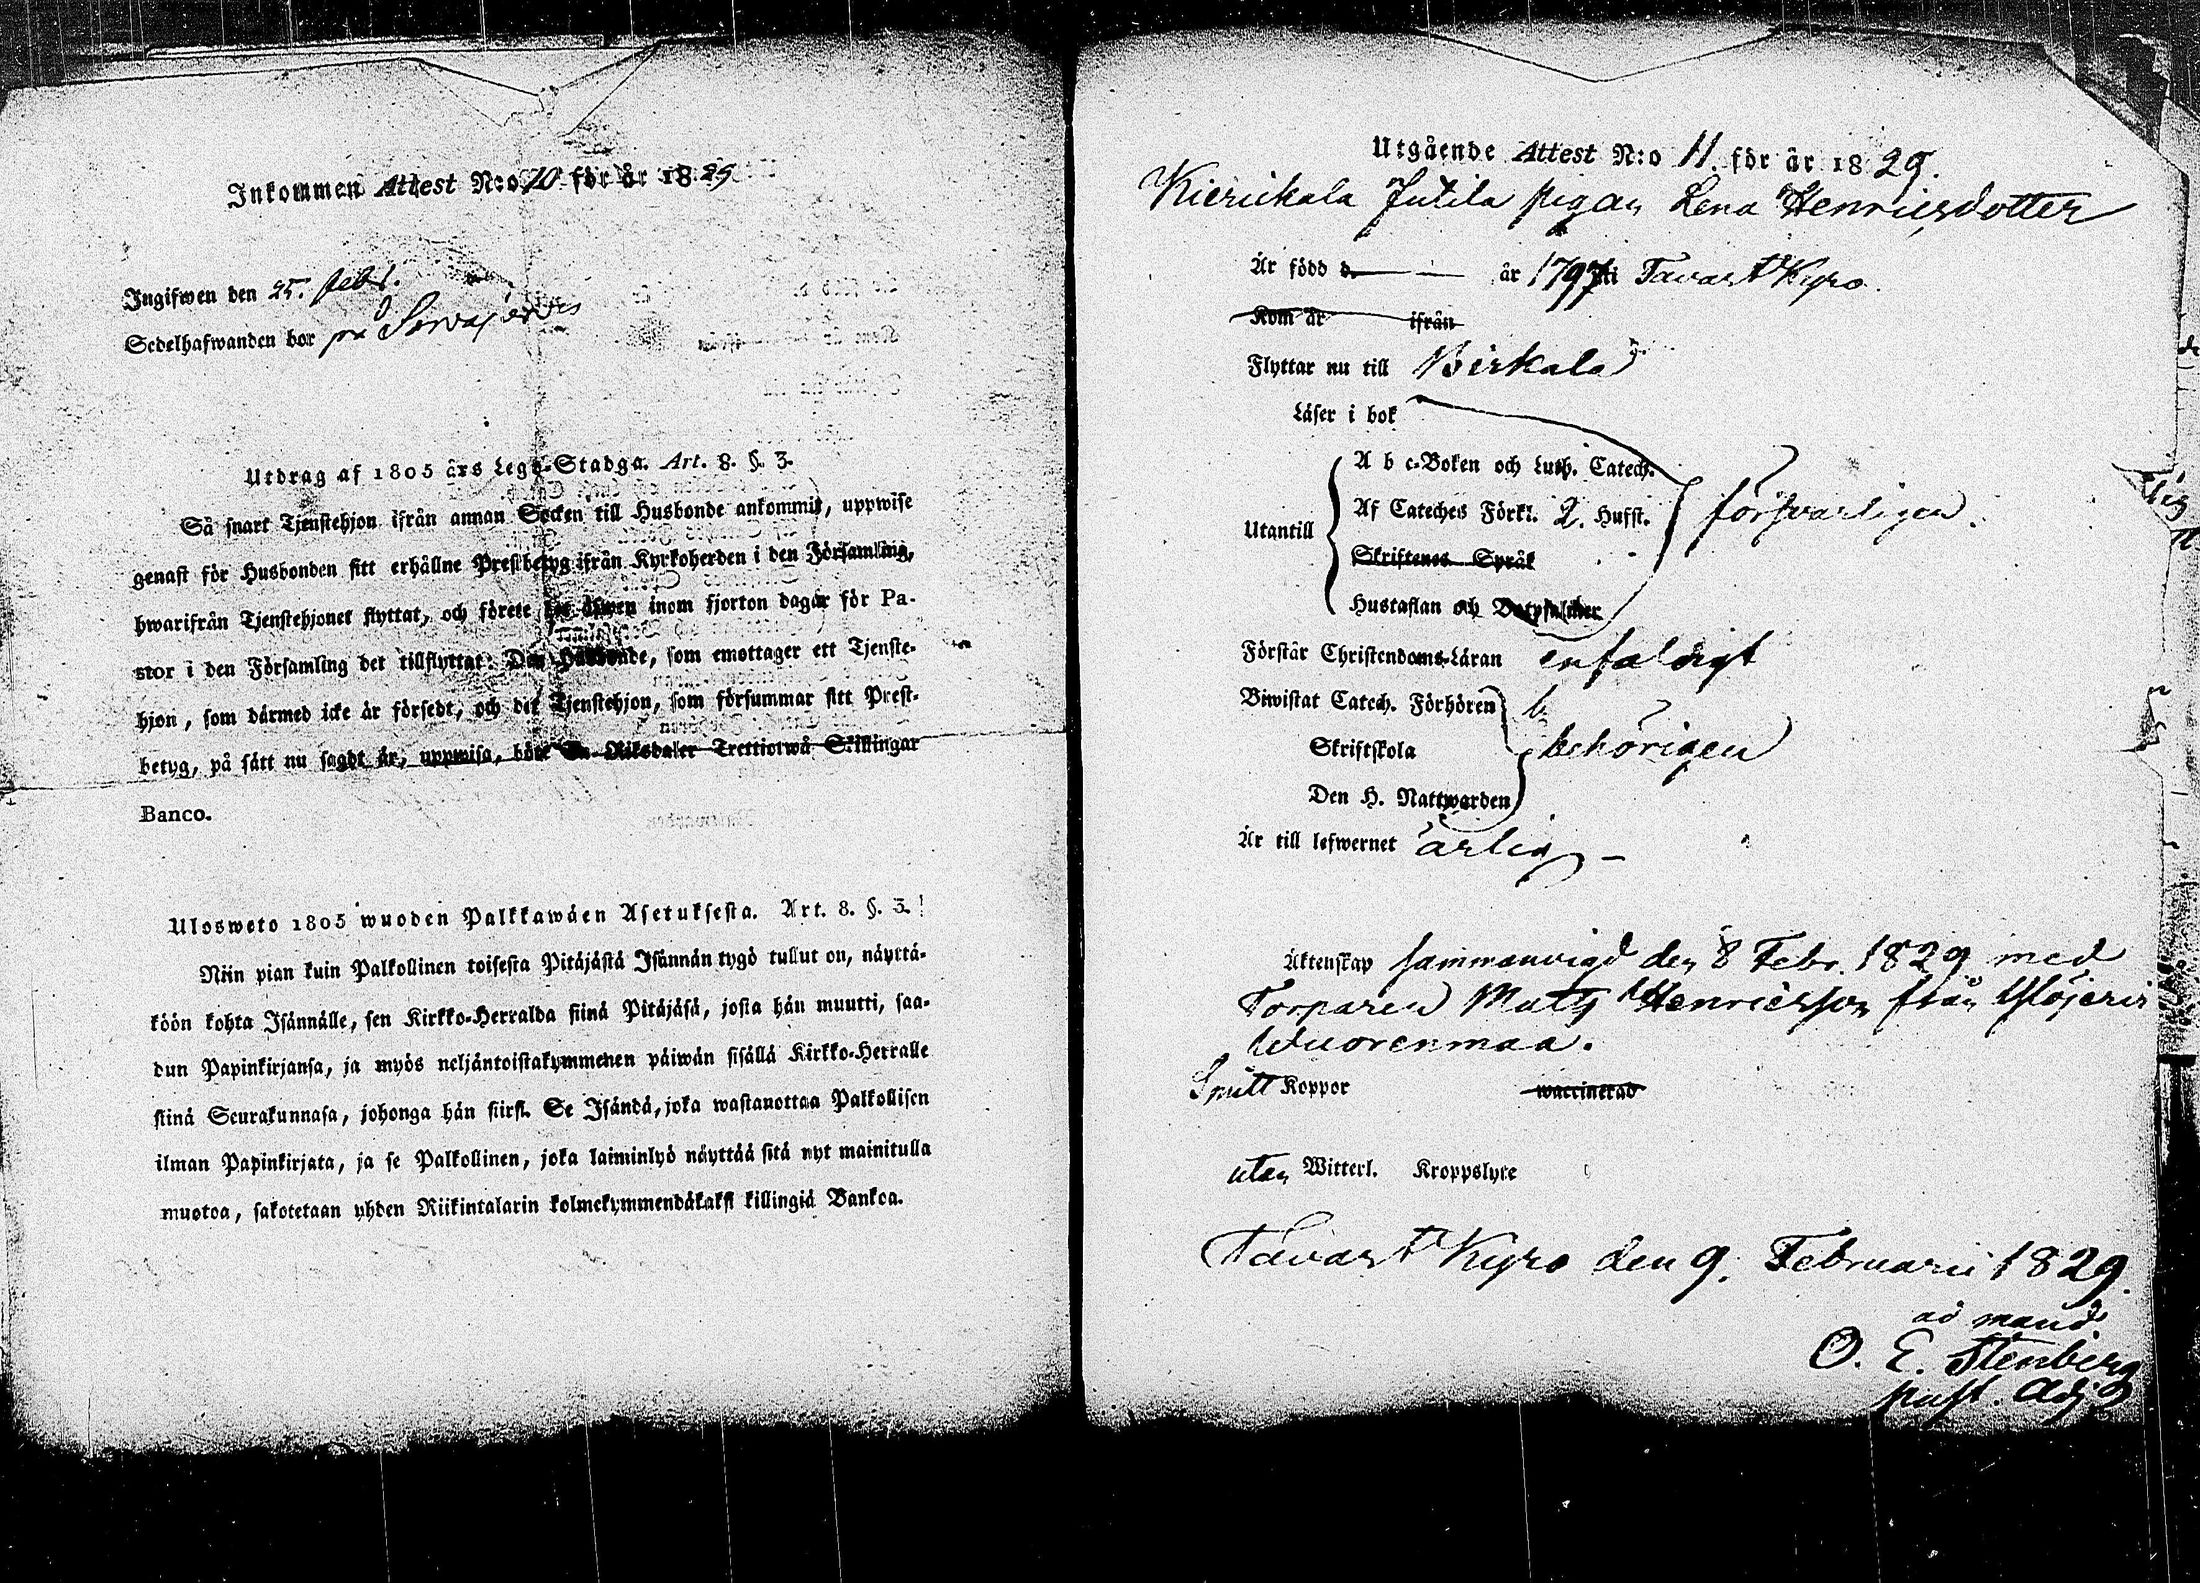 Inkommen Attest N:o 10 för år 1829
Ingifwen den 25. febr.
Sedelhafwanden bor på Sorvajärvis
Utdrag af 1805 års Lego-Stadga. Art. 8. §. 3.
Så snart Tjenstehjon ifrån annan Socken till Husbonde ankommit, uppwise
genast för Husbonden sitt erhållne Prestbetyg ifrån Kyrkoherden i den Församling,
hwarifrån Tjenstehjonet flyttat, och förete det äfwen inom fjorton dagar för Pa-
stor i den Församling det tillflyttat. Den Husbonde, som emottager ett Tjenste-
hjon, som därmed icke är försedt, och det Tjenstehjon, som försummar sitt Prest-
betyg, på sätt nu sagdt är, uppwisa, böte En Riksdaler Trettiotwå Skillingar
Banco.
Ulosweto 1805 wuoden Palkkawäen Asetuksesta. Art. 8. §. 3.
Niin pian kuin Palkollinen toisesta Pitäjästä Isännän tygö tullut on, näyttä-
köön kohta Isännälle, sen Kirkko-Herralda siinä Pitäjäsä, josta hän muutti, saa-
dun Papinkirjansa, ja myös neljäntoistakymmenen päiwän sisällä Kirkko-Herralle
siinä Seurakunnasa, johonga hän siirst. Se Isändä, joka wastanottaa Palkollisen
ilman Papinkirjata, ja se Palkollinen, joka laiminlyö näyttää sitä nyt mainitulla
muotoa, sakotetaan yhden Riikintalarin kolmekymmendäkaksi killingiä Bankoa.
Utgående Attest N:o 11. för år 1829.
Kierikala Jutila pigan Lena Henricsdotter
Är född d. år 1797 i Tavast Kyro.
Kom år ifrån
Flyttar nu till Birkala
Läser i bok
Utantill
A b c-Boken och Luth. Catech.
Af Cateches Förkl. 2. Hufst. försvarligen.
Skriftenes Språk
Hustaflan och Botpsalmer
Förstår Christendoms-Läran enfaldigt
Biwistat Catech. Förhören b.
Skriftskola behörigen
Den H. Nattwarden
Är till lefwernet ärlig
Äktenskap sammanvigd den 8 Febr. 1829 med
Torparen Matts Henricsson från Ylöjervi
Wuorenmaa.
Smitt Koppor waccinerad
utan Witterl. Kroppslyte
Tavast Kyro den 9. Februarii 1829.
ad mand
O. E. Stenberg
past. Adj